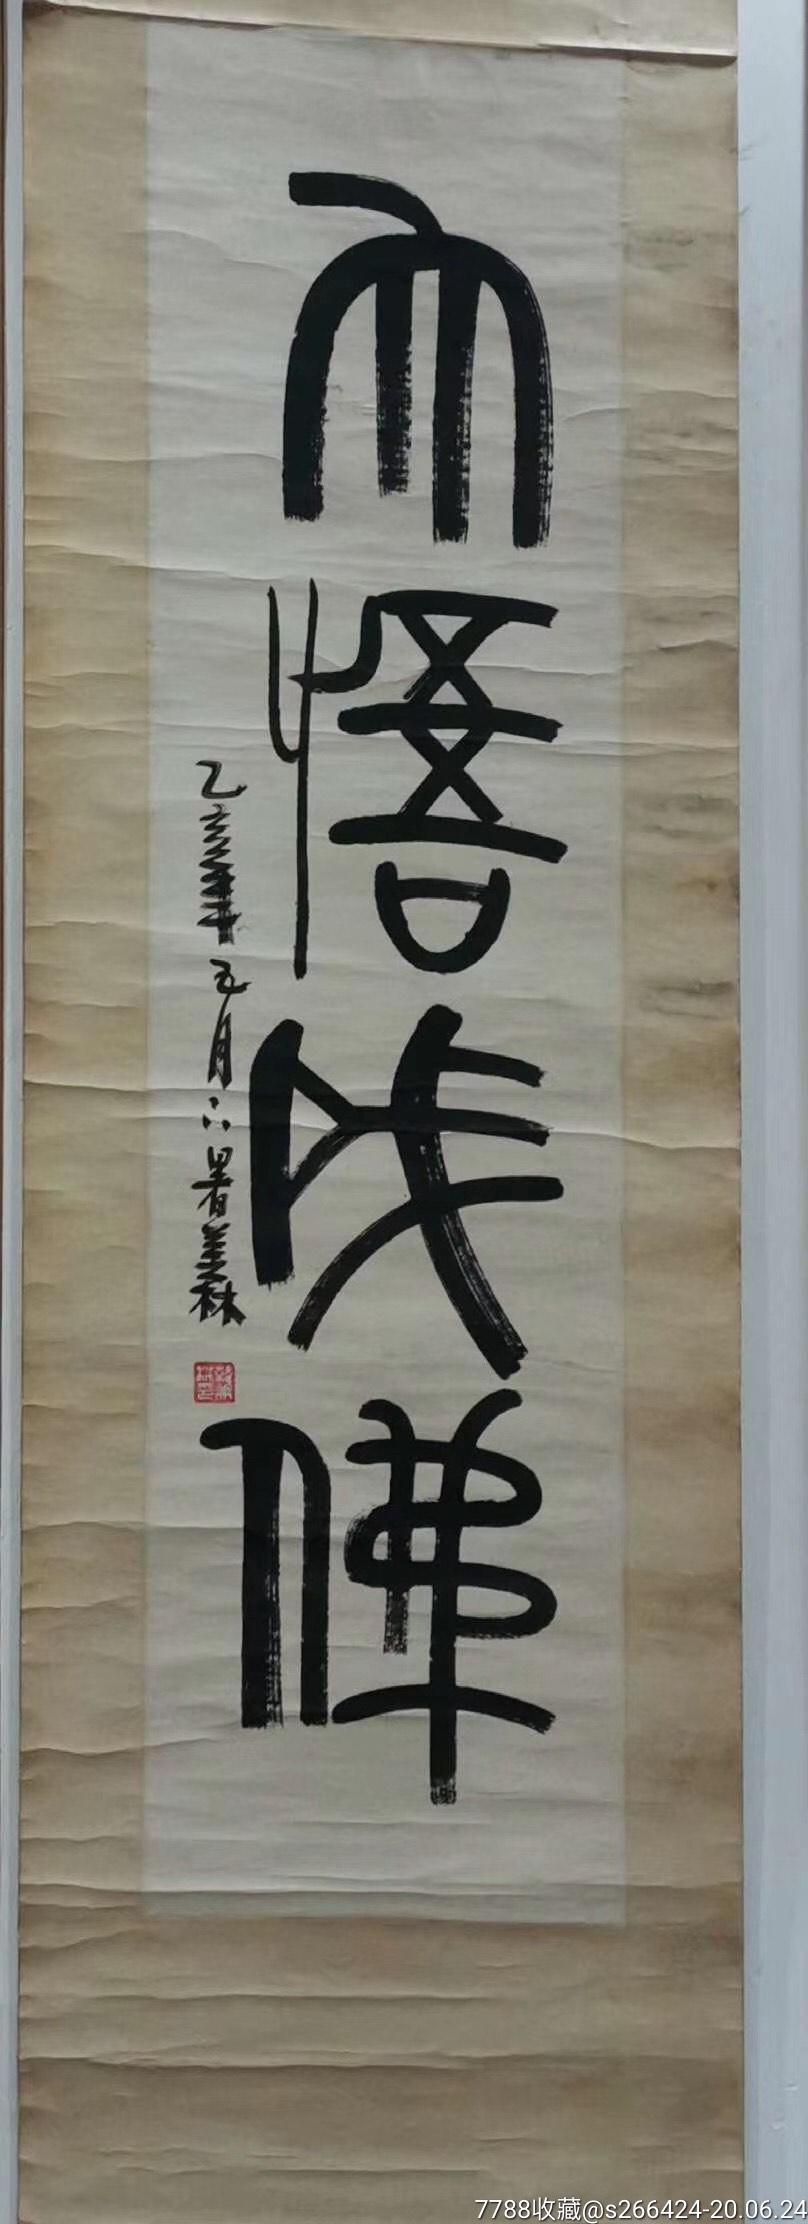 而悟成佛
乙亥年五月六署美林
7788收藏@s266424-20.06.24